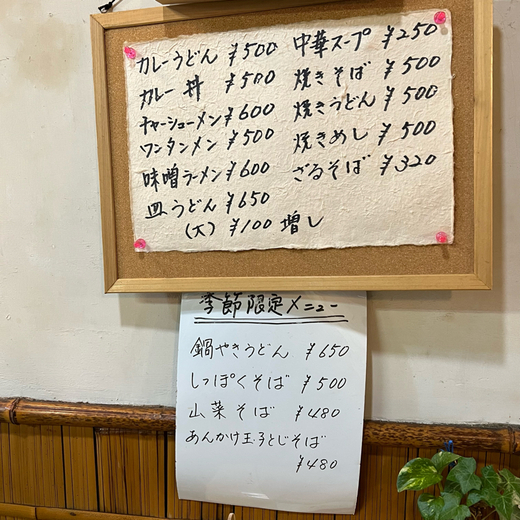 カレーうどん ¥500
カレー丼 ¥500
チャーシューメン ¥600
ワンタンメン ¥500
味噌ラーメン ¥600
皿うどん ¥650
(大) ¥100 増し
中華スープ ¥250
焼きそば ¥500
焼きうどん ¥500
焼きめし ¥500
ざるそば ¥320
季節限定メニュー
鍋やきうどん ¥650
しっぽくそば ¥500
山菜そば ¥480
あんかけ玉子とじそば
¥480